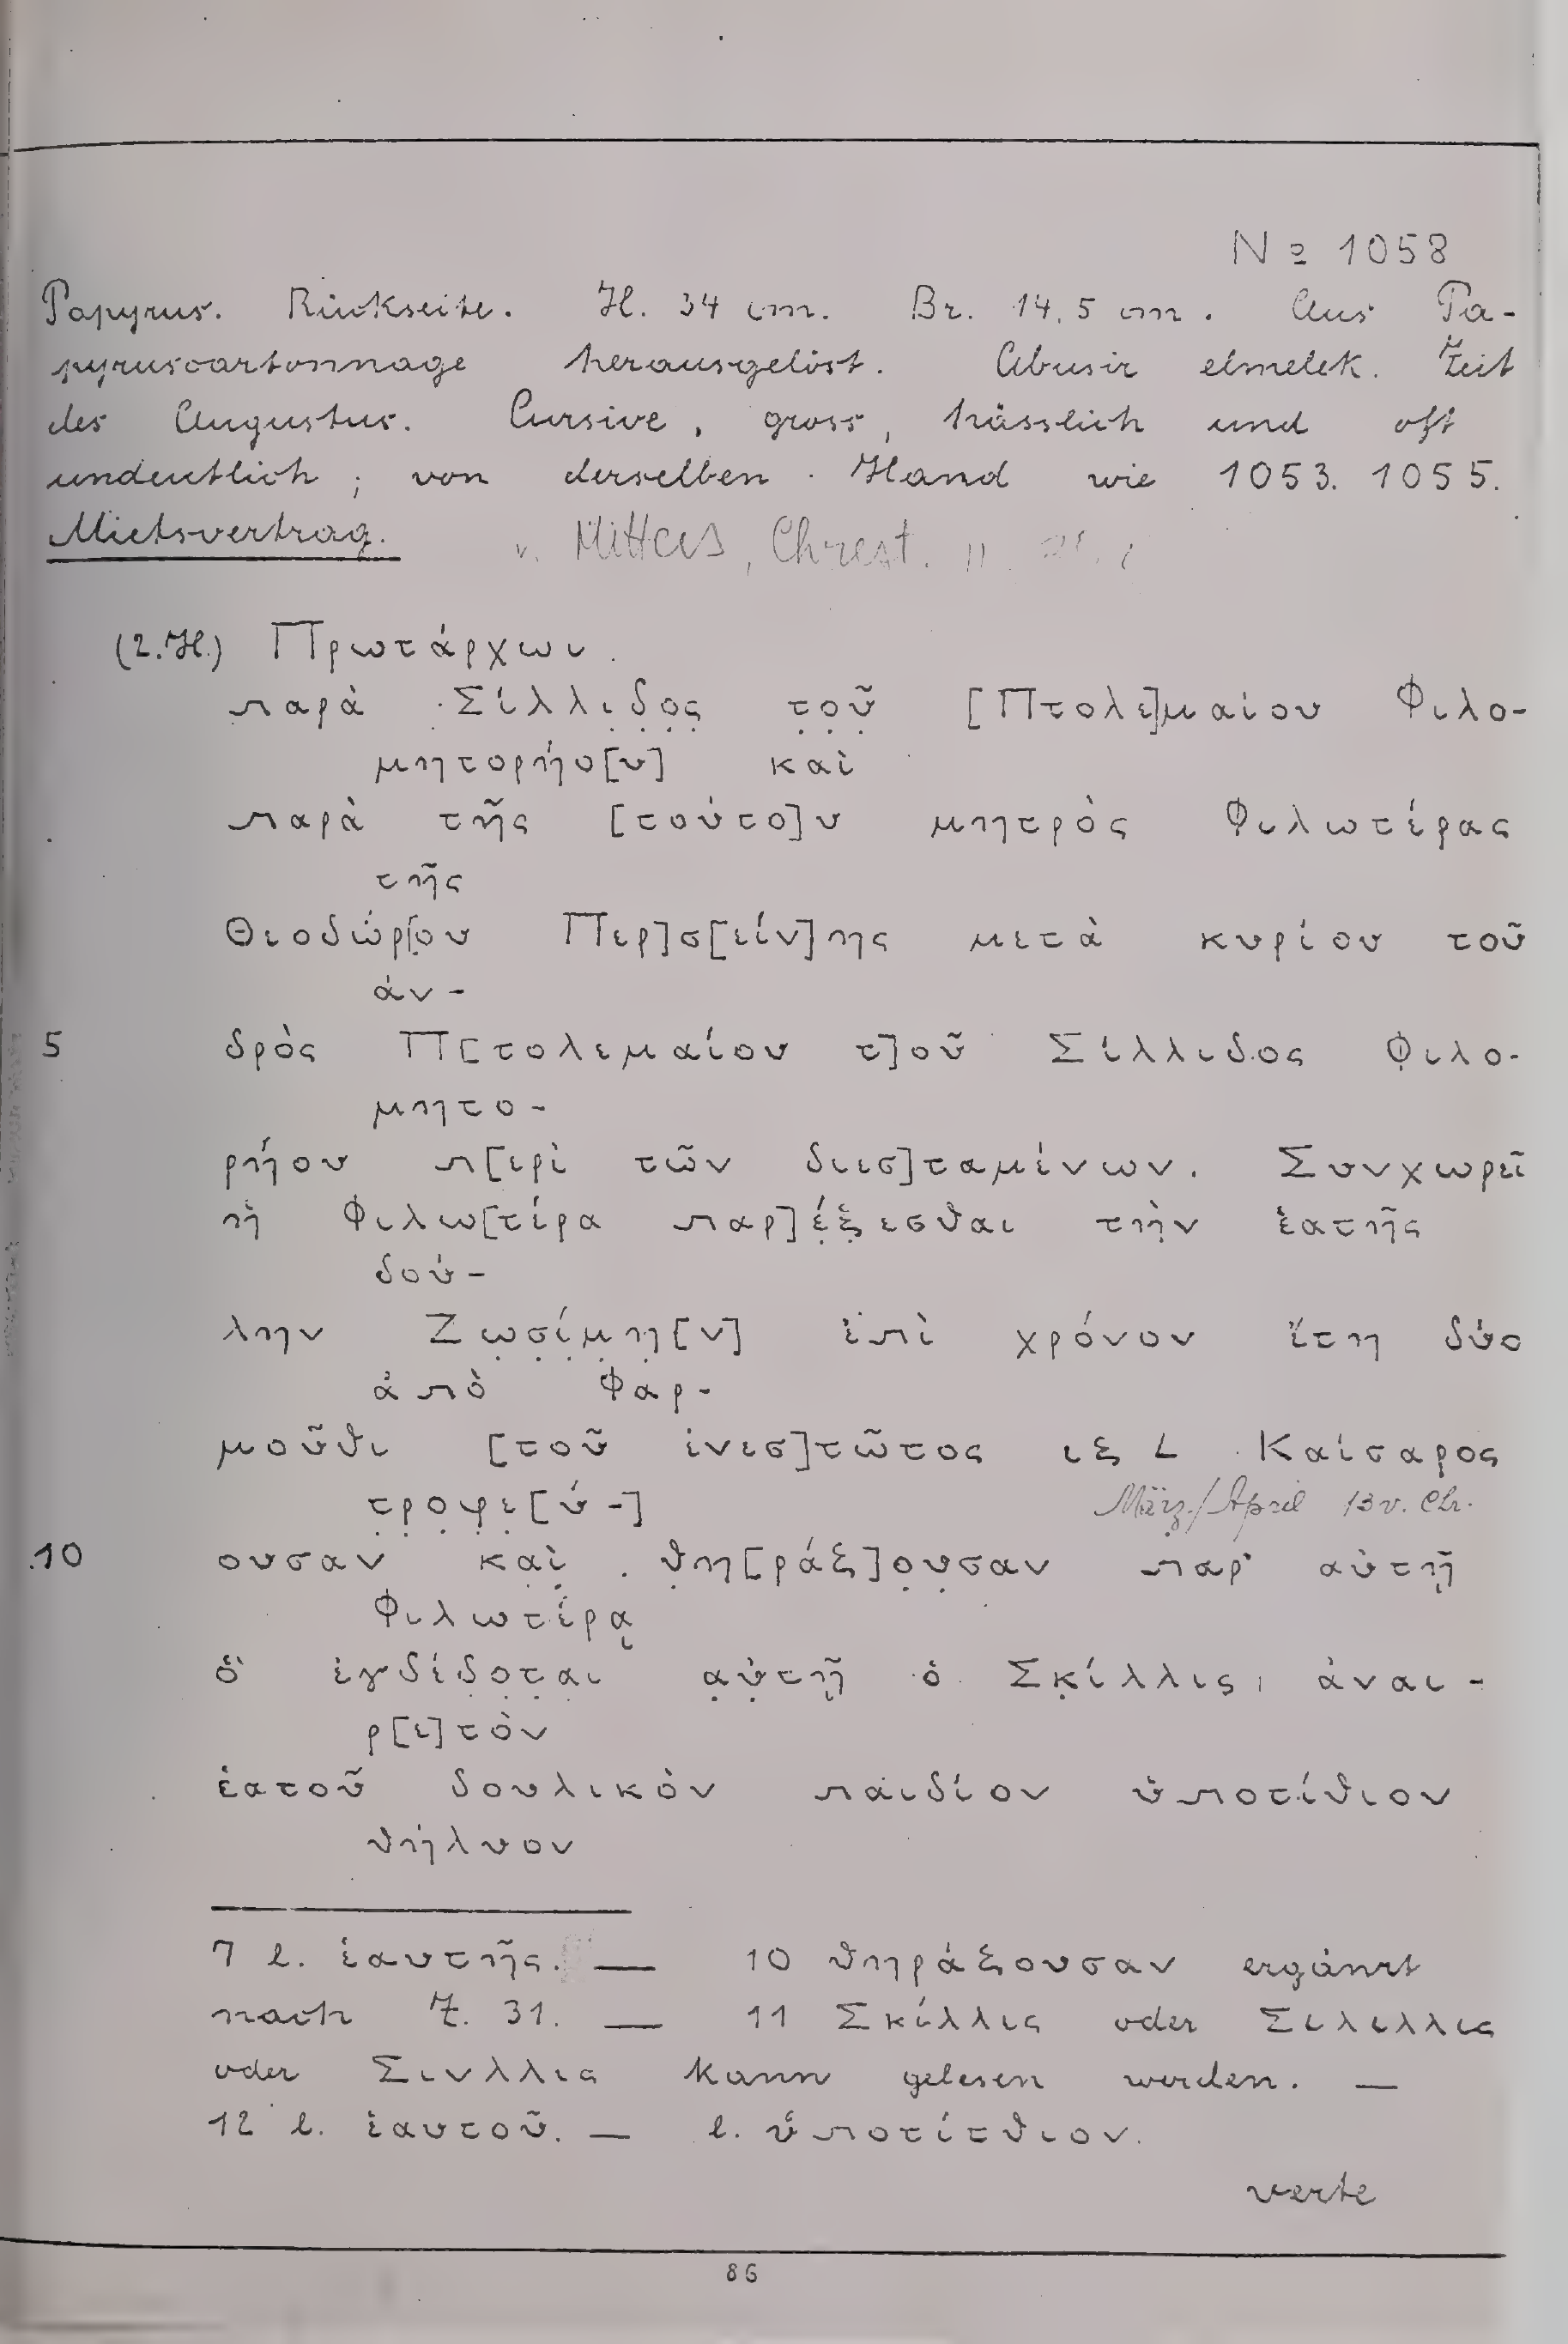 No 1058
Papyrus. Rückseite. H. 34 cm. Br. 14,5 cm. Aus Pa-
pyruscartonnage herausgelöst. Abusir elmelek. Zeit
des Augustus. Cursive, gross, hässlich und oft
undeutlich; von derselben Hand wie 1053. 1055.
Mietsvertrag. v. Mitteis, Chrest. II
(2.H.) Πρωτάρχωι
παρὰ Σίλλιδ̣ο̣ς̣ τ̣ο̣ῦ̣ [Πτολε]μαίου Φιλο-
μητορήο[υ] καὶ
παρὰ τῆς [τούτο]υ μητρὸς Φιλωτέρας
τῆς
Θεοδώρ[ου Περ]σ[είν]ης μετὰ κυρίου τοῦ
ἀν-
5 δρὸς Π[τολεμαίου τ]οῦ Σίλλιδος Φιλο-
μητο-
ρήου π[ερὶ τῶν διεσ]ταμένων. Συνχωρεῖ
ἡ Φιλω[τέρα παρ]έ̣ξ̣εσθαι τὴν ἑατῆς
δού-
λην Ζω̣σ̣ί̣μ̣η̣[ν] ἐπὶ χρόνον ἔτη δύο
ἀπὸ Φαρ-
μοῦθι [τοῦ ἐνεσ]τῶτος ιξ L Καίσαρος
τ̣ρ̣ο̣φ̣ε̣[ύ-] März/April 13 v. Chr.
10 ουσαν κα̣ὶ̣ θ̣η[ράξ]ο̣υ̣σαν παρ' αὐτῇ
Φιλωτέρᾳ
ὃ ἐγδέδ̣ο̣τ̣α̣ι α̣ὐ̣τῇ ὁ Σκ̣ίλλις, ἀναι-
ρ[ε]τὸν
ἑατοῦ δουλικὸν παιδίον ὑποτίθιον
θήλυον
7 l. ἑαυτῆς. — 10 θηράξουσαν ergänzt
nach Z. 31. — 11 Σκίλλις oder Σιλιλλις
oder Σινλλις kann gelesen werden. —
12 l. ἑαυτοῦ. — l. ὑποτίτθιον.
verte
86